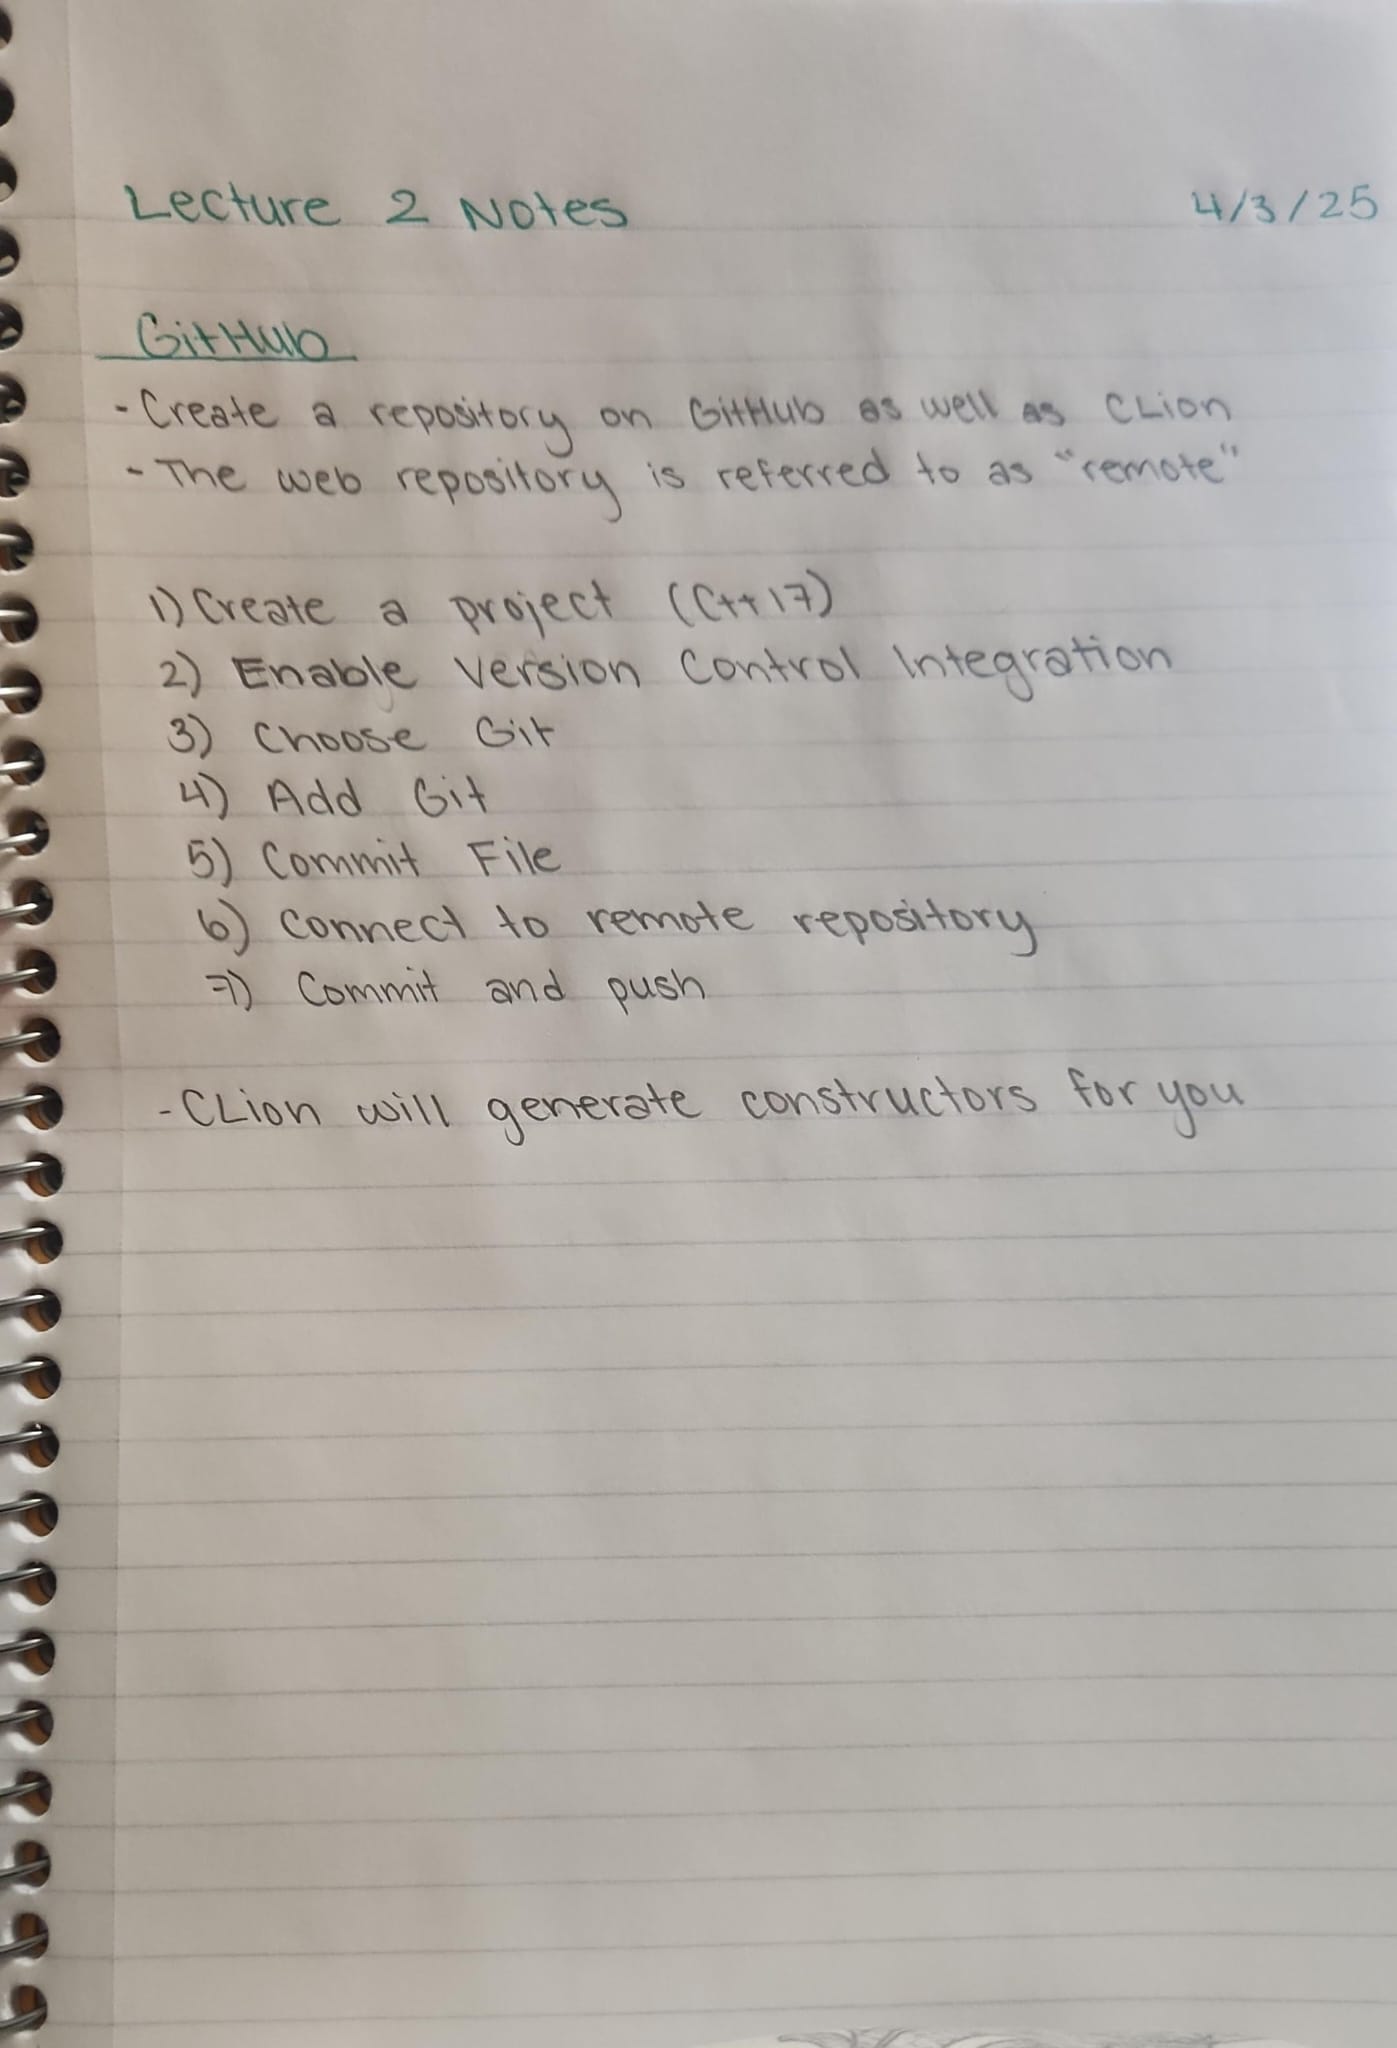 Lecture 2 Notes 4/3/25
GitHub
- Create a repository on GitHub as well as CLion
- The web repository is referred to as "remote"
1) Create a project (C++17)
2) Enable Version Control Integration
3) Choose Git
4) Add Git
5) Commit File
6) Connect to remote repository
7) Commit and push
- CLion will generate constructors for you